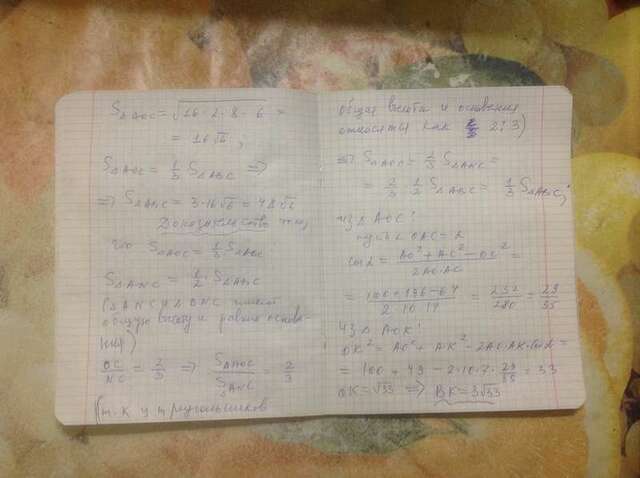 S△AOC = √16·2·8·6 =
= 16√6,
S△AOC = 1/3 S△ABC ⇒
⇒ S△ABC = 3·16√6 = 48√6
Доказательство того,
что S△AOC = 1/3 S△ABC
S△ANC = 1/2 · S△ABC
(△ANC и △BNC имеют
общую высоту и равные основа-
ния)
OC/NC = 2/3 ⇒ S△AOC/S△ANC = 2/3
(т.к у треугольников
общая высота и основания
относятся как 2:3)
⇒ S△AOC = 2/3 S△ANC =
= 2/3 · 1/2 S△ABC = 1/3 S△ABC;
Из △AOC:
пусть ∠OAC = α
cosα = AO² + AC² − OC² / 2AO·AC =
= 100+196−64 / 2·10·14 = 232/280 = 29/35
Из △AOK:
OK² = AO² + AK² − 2AO·AK·cosα =
= 100 + 49 − 2·10·7·29/35 = 33
OK = √33 ⇒ BK = 3√33